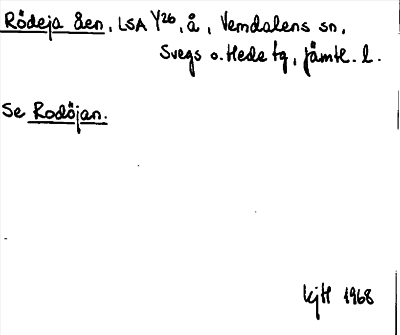 Rödeja åen, LSA Y26, å, Vemdalens sn,
Svegs o. Hede tg, Jämtl. l.
Se Rodöjan.
kjH 1968